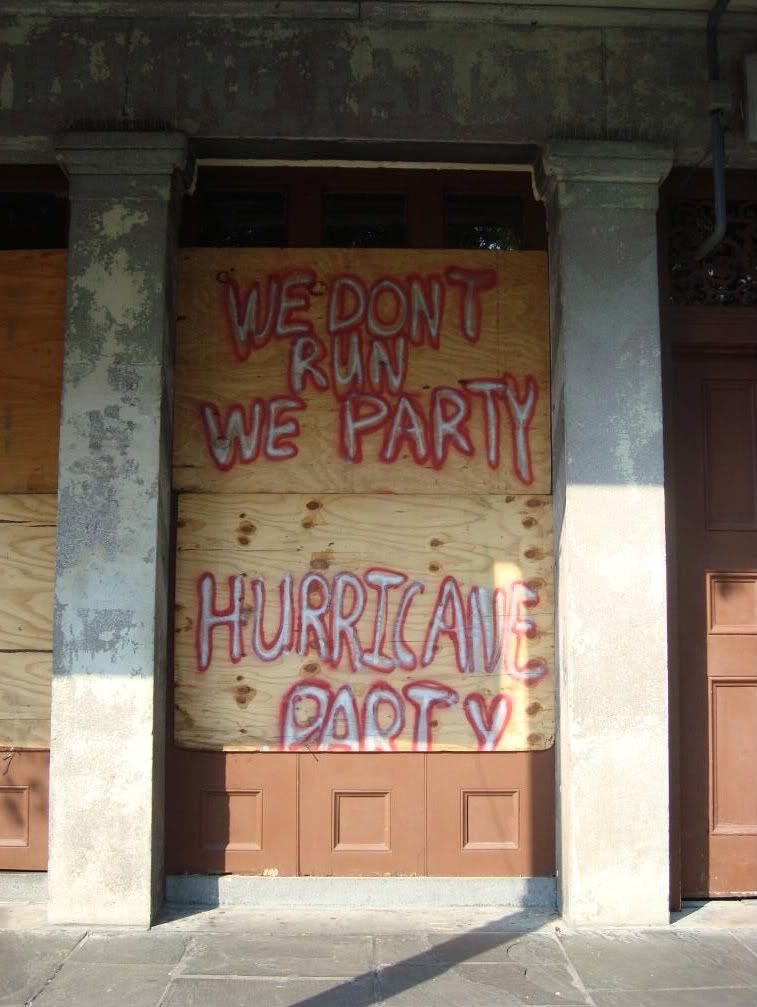 WE DONT
RUN
WE PARTY
HURRICANE
PARTY